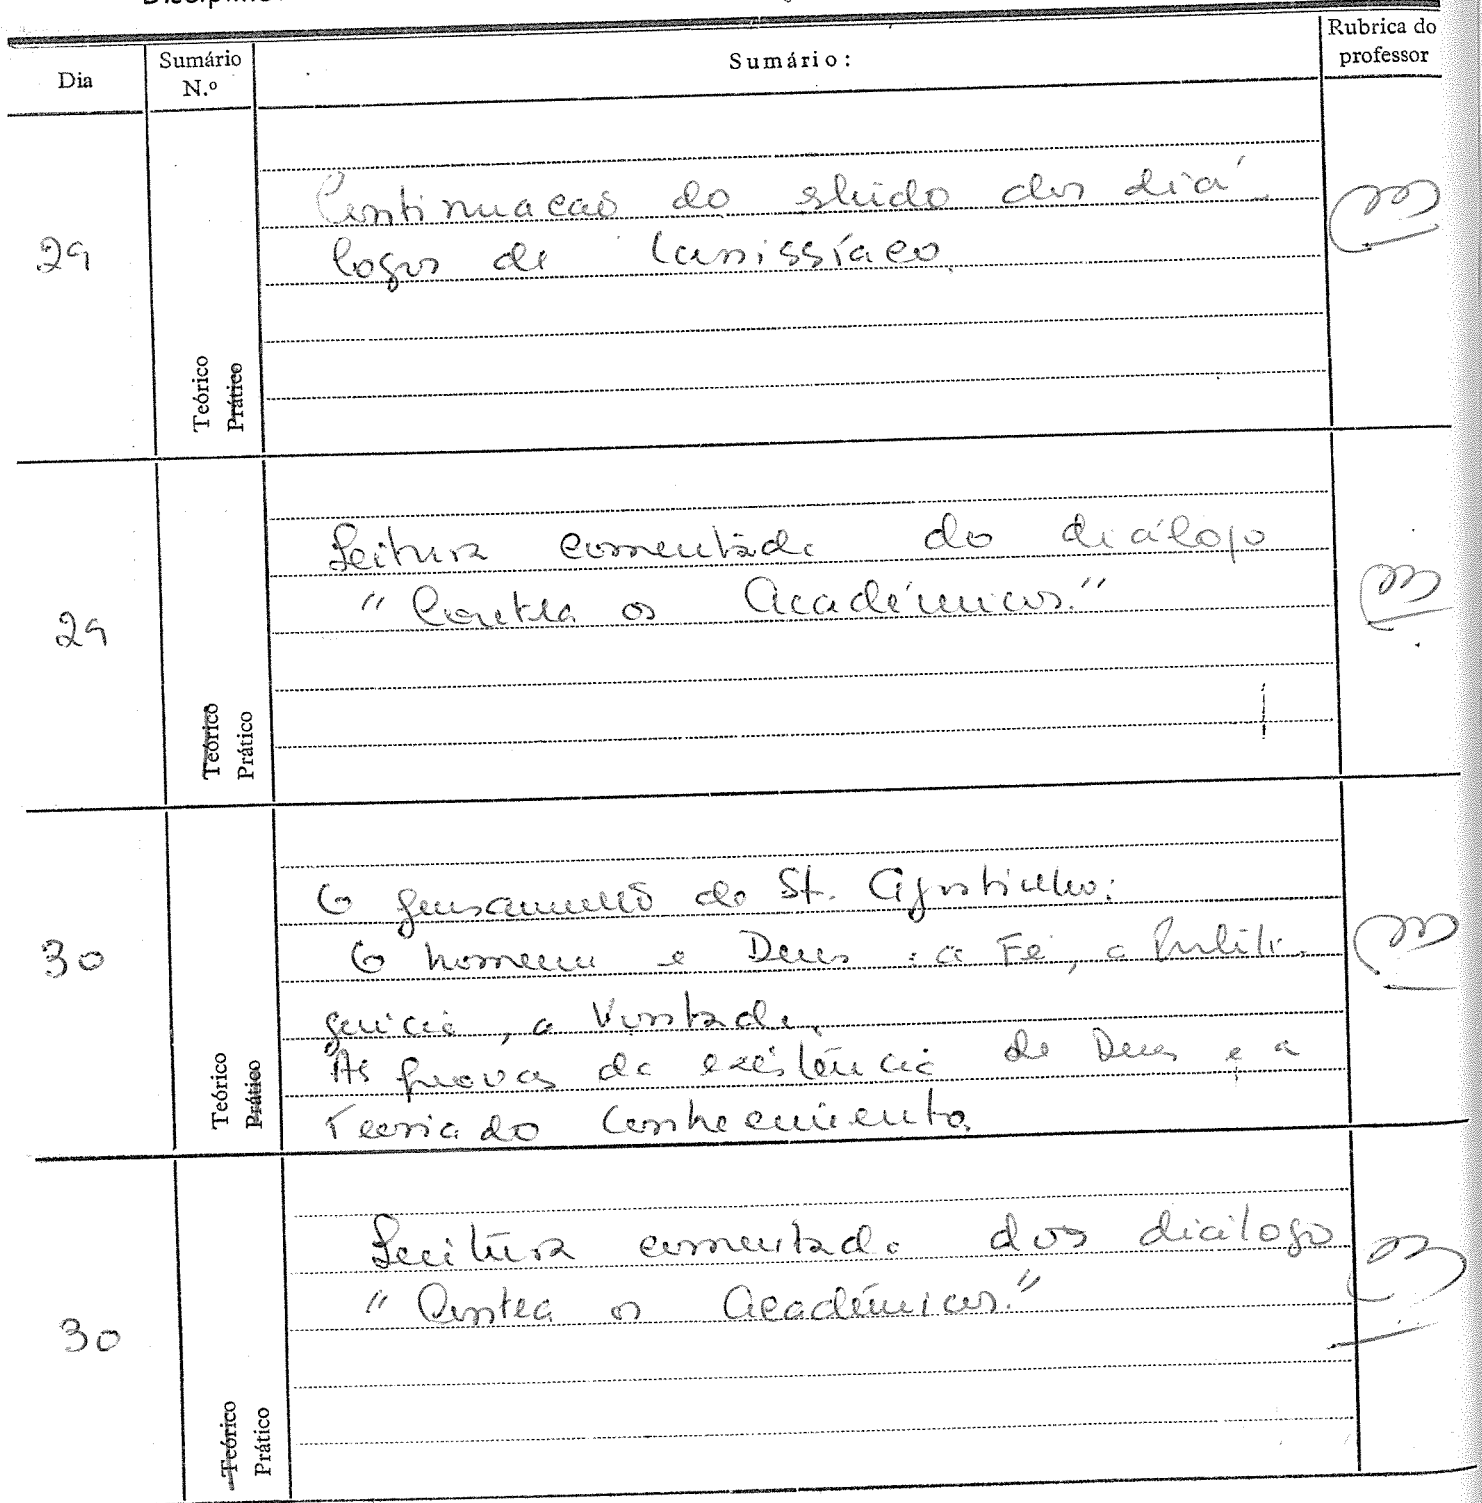 Dia
Sumário N.º
Sumário:
Rubrica do professor
29
Teórico
Prático
Continuação do estudo dos diá-
logos de Cassissíaco
29
Teórico
Prático
Leitura comentada do diálogo
"Contra os Académicos."
30
Teórico
Prático
O pensamento de St. Agostinho:
O homem e Deus: a Fé, a Inteli-
gência, a Vontade.
As provas da existência de Deus e a
Teoria do Conhecimento.
30
Teórico
Prático
Leitura comentada dos diálogo
"Contra os Académicos."